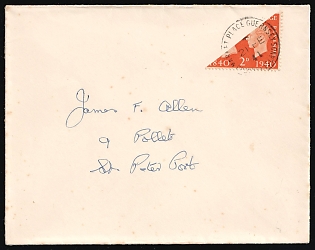 PLACE GUERNSEY
1840 2D 1940
James F. Allen
9 Pollet
St Peter Port